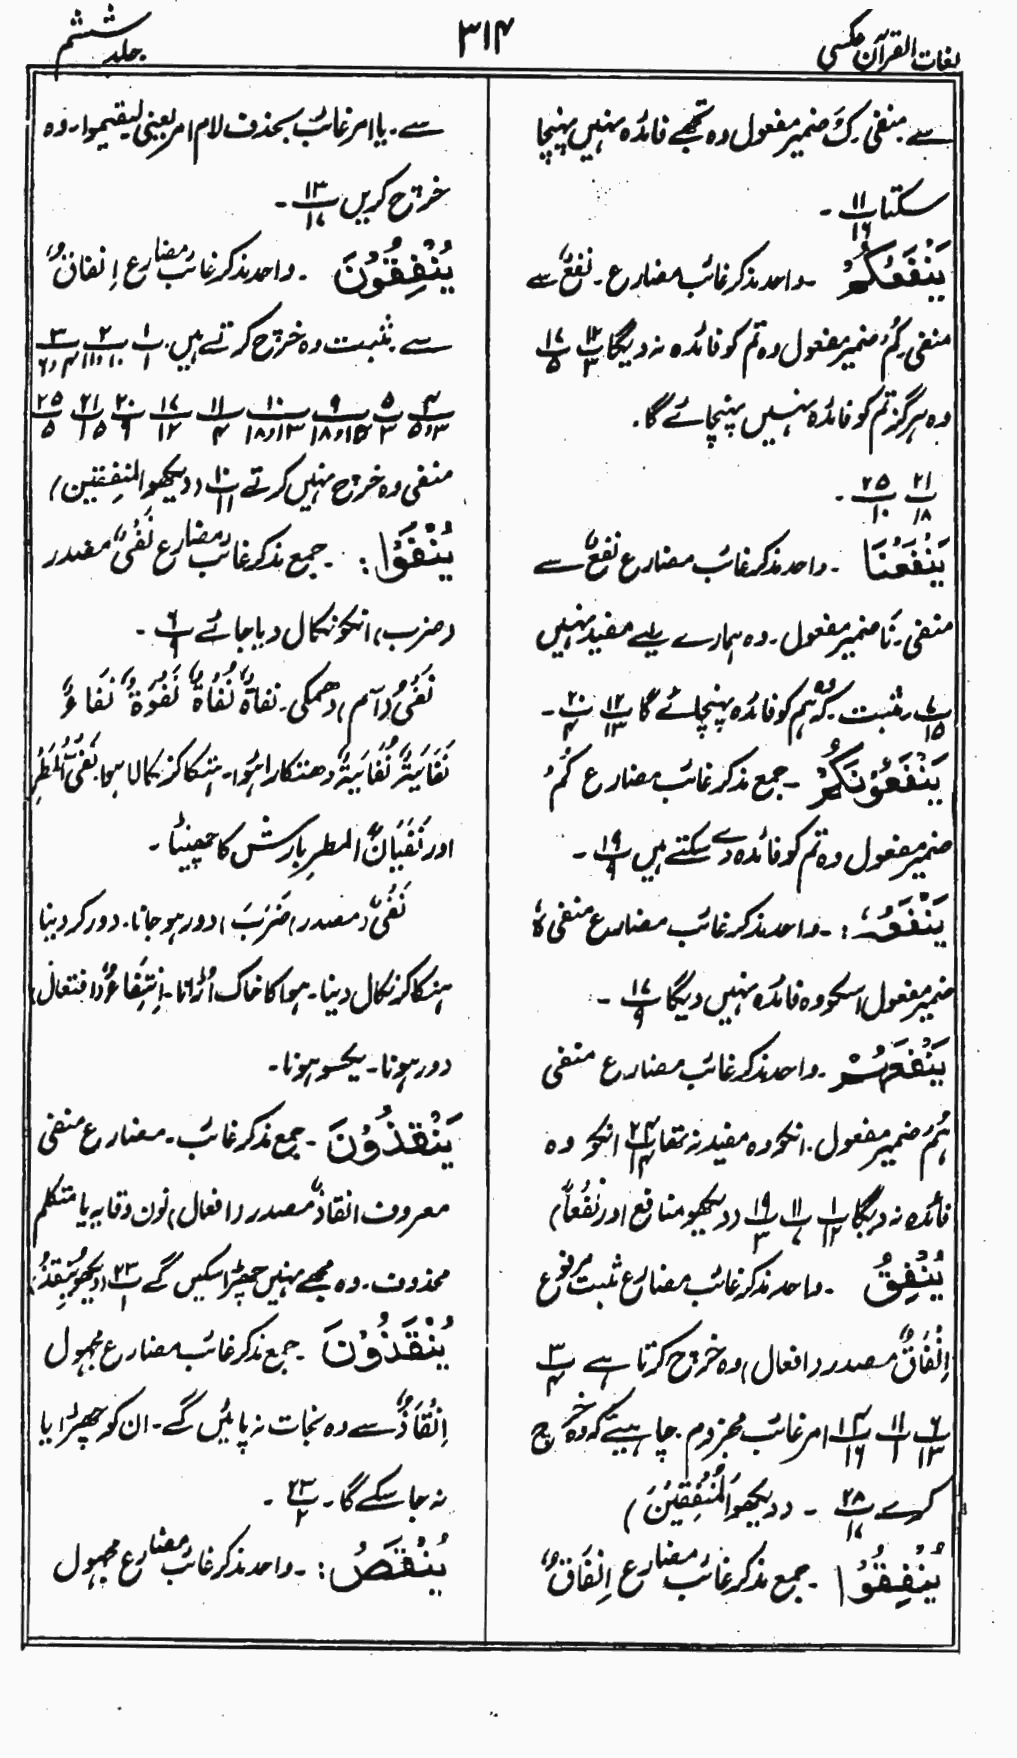 لغات القرآن عکسی
۳۱۴
جلد ششم
سے۔ منفی۔ کَ ضمیر مفعول وہ تجھے فائدہ نہیں پہنچا
سکتا ۱۱/۱۶ ۔
یَنْفَعُکُمْ ۔ واحد مذکر غائب مضارع۔ نفعٌ سے
منفی کُمْ ضمیر مفعول وہ تم کو فائدہ نہ دیگا ۱۲/۳ ۱۷/۵
وہ ہرگز تم کو فائدہ نہیں پہنچائے گا۔
۲۱/۱۸ ۲۵/۱۰ ۔
یَنْفَعُنَا ۔ واحد مذکر غائب مضارع نفعٌ سے
منفی۔ نَا ضمیر مفعول۔ وہ ہمارے لیے مفید نہیں
۷/۱۵ مثبت کہ وہ ہم کو فائدہ پہنچائے گا ۱۲/۱۳ ۲۰/۴ ۔
یَنْفَعُوْنَکُمْ ۔ جمع مذکر غائب مضارع کُمْ
ضمیر مفعول وہ تم کو فائدہ دے سکتے ہیں ۱۹/۹ ۔
یَنْفَعُہٗ : ۔ واحد مذکر غائب مضارع منفی ہٗ
ضمیر مفعول اسکو وہ فائدہ نہیں دیگا ۱۷/۹ ۔
یَنْفَعُہُمْ ۔ واحد مذکر غائب مضارع منفی
ہُمْ ضمیر مفعول۔ انکو وہ مفید نہ تھا ۲۴/۱۴ انکو وہ
فائدہ نہ دیگا ۱/۱۲ ۱۱/۷ ۱۹/۳ (دیکھو منافع اور نَفْعاً)
یُنْفِقُ ۔ واحد مذکر غائب مضارع مثبت مرفوع
اِنْفَاقٌ مصدر (افعال) وہ خرچ کرتا ہے ۳/۴
۶/۱۳ ۱۱/۱ ۱۴/۱۶ امر غائب مجزوم۔ چاہیئے کہ وہ خرچ
کرے ۲۸/۱۷ ۔ (دیکھو اَلْمُنْفِقِیْنَ)
یُنْفِقُوْا ۔ جمع مذکر غائب مضارع اِنْفَاقٌ
سے۔ یا امر غائب بحذف لام امر یعنی لیقیموا۔ وہ
خرچ کریں ۱۳/۱۷ ۔
یُنْفِقُوْنَ ۔ واحد مذکر غائب مضارع اِنفاقٌ
سے۔ مثبت وہ خرچ کرتے ہیں۔ ۱/۱ ۲/۱۰،۱۱،۴ ۳/۶،۵
۴/۳،۵ ۵/۳ ۹/۱۵،۱۸ ۱۰/۱۳،۱۸ ۱۱/۴ ۱۷/۱۲ ۲۰/۹ ۲۱/۱۵ ۲۵/۵
منفی وہ خرچ نہیں کرتے ۱۰/۱۱ (دیکھو المنفقین)
یُنْفَوْا : ۔ جمع مذکر غائب مضارع نَفْیٌ مصدر
(ضرب) انکو نکال دیا جائے ۶/۹ ۔
نَفْیٌ (اسم) دھمکی۔ نفاةٌ نُفَاةٌ نَفْوَةٌ نَفَاءٌ
نَفَایَةٌ نُفَایَةٌ دھتکارا ہوا۔ ہنکا کر نکالا ہوا نَفْیُ الْمَطَرِ
اور نَفَیَانُ المطرِ بارش کا چھینٹا ۔
نَفْیٌ (مصدر) ضَرَبَ) دور ہو جانا۔ دور کر دینا
ہنکا کر نکال دینا۔ ہوا کا خاک اُڑانا۔ اِنْتِفَاءٌ (افتعال)
دور ہونا۔ یکسو ہونا۔
یُنْقِذُوْنَ ۔ جمع مذکر غائب۔ مضارع منفی
معروف انقاذٌ مصدر (افعال) نون وقایہ یا متکلم
محذوف۔ وہ مجھے نہیں چھڑا سکیں گے ۲۳/۱ (دیکھو یُنْقِذُ)
یُنْقَذُوْنَ ۔ جمع مذکر غائب مضارع مجہول
اِنْقَاذٌ سے وہ نجات نہ پائیں گے۔ ان کو چھڑایا
نہ جا سکے گا۔ ۲۳/۲ ۔
یُنْقَصُ : ۔ واحد مذکر غائب مضارع مجہول